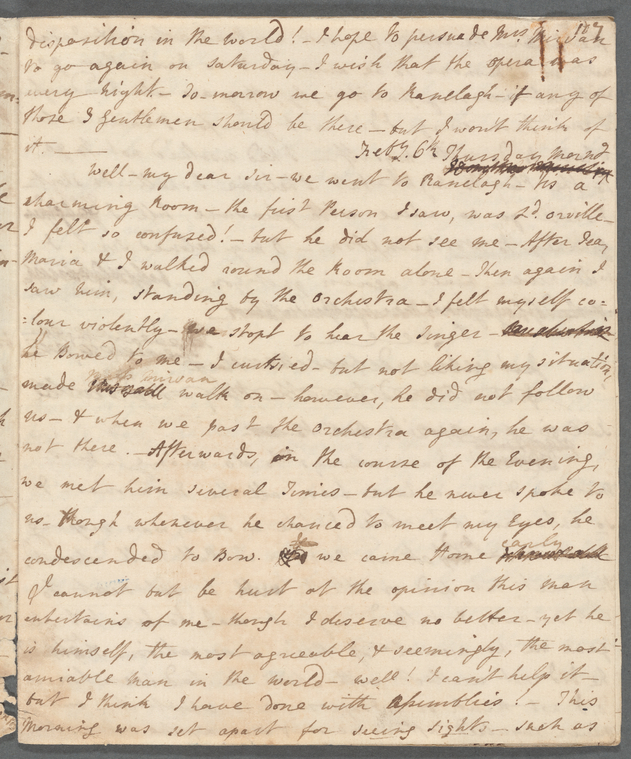 107
disposition in the world! - I hope to persuade Mrs. Mirvan
to go again on Saturday - I wish that the opera was
every night - To-morrow we go to Ranelagh - if any of
those 3 Gentlemen should be there - but I won't think of
it. —— Feby. 6th Thursday Morng
Well - my dear Sir - we went to Ranelagh - tis a
charming Room - the first Person I saw, was Ld. orville -
I felt so confused! - but he did not see me - After Tea,
Maria & I walked round the Room alone - then again I
saw him, standing by the orchestra - I felt myself co=
=lour violently - we stopt to hear the Singer -
he Bowed to me - I curtsied - but not liking my situation
made Miss Mirvan walk on - however, he did not follow
us - & when we past the orchestra again, he was
not there. - Afterwards, in the course of the Evening,
we met him several Times - but he never spoke to
us - though whenever he chanced to meet my Eyes, he
condescended to Bow. we came Home early
I cannot but be hurt at the opinion this man
entertains of me - though I deserve no better - yet he
is himself, the most agreeable, & seemingly, the most
amiable man in the world - well! I can't help it -
but I think I have done with assemblies! - This
Morning was set apart for seeing sights - such as